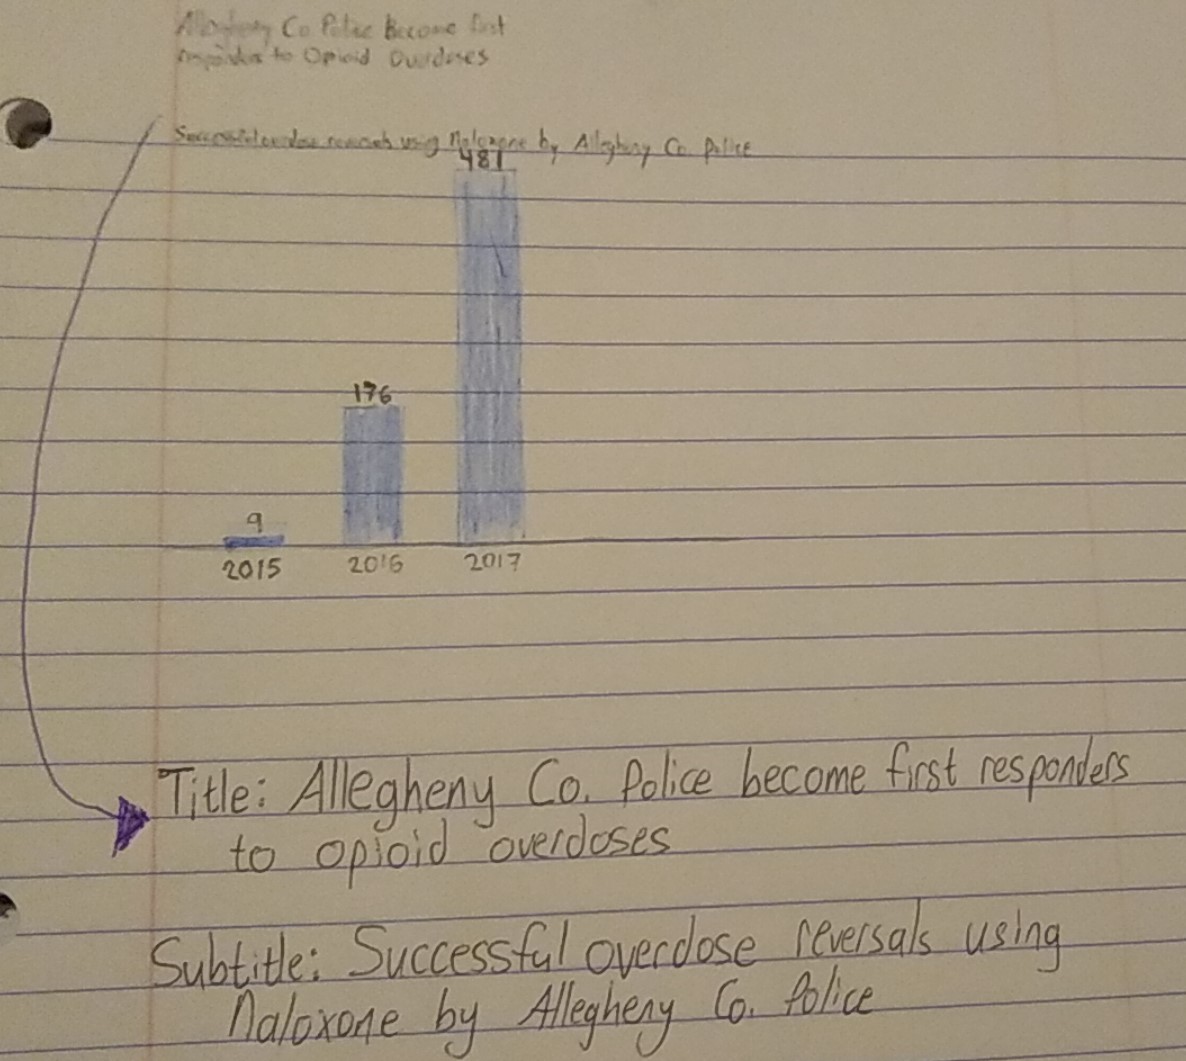 Allegheny Co Police Become first
responder to Opioid Overdoses
Successful overdose reversals using Naloxone by Allegheny Co. Police
481
176
9
2015 2016 2017
Title: Allegheny Co. Police become first responders
to opioid overdoses
Subtitle: Successful overdose reversals using
Naloxone by Allegheny Co. Police